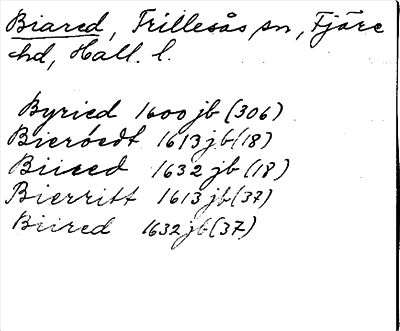 Biared, Frillesås sn, Fjäre
hd, Hall. l.
Byried 1600 jb (306)
Bieröedt 1613 jb (18)
Biieed 1632 jb (18)
Bierritt 1613 jb (37)
Biired 1632 jb (37)